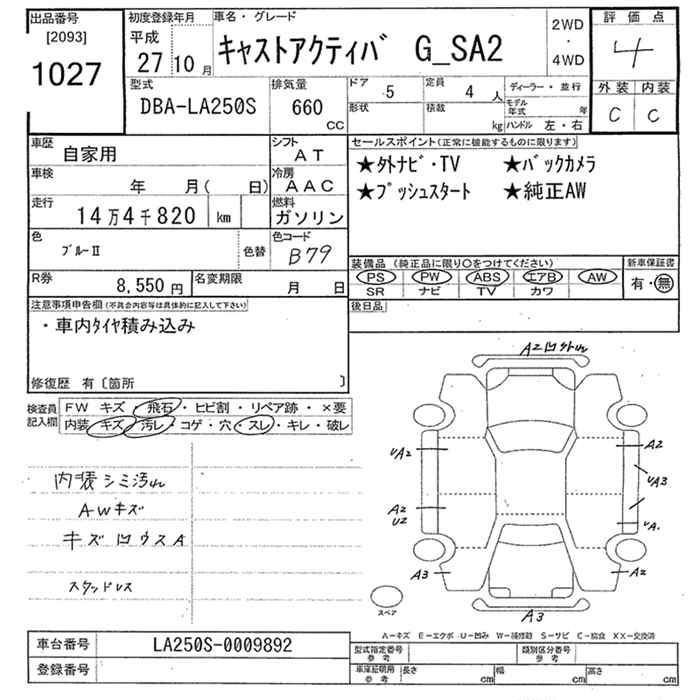 出品番号
[2093]
1027
初度登録年月
平成
27 10 月
車名・グレード
キャストアクティバ G_SA2
2WD
・
4WD
評価点
4
外装 内装
C C
型式
DBA-LA250S
排気量
660
CC
ドア 5
定員 4 人
形状
積載 kg
ディーラー・並行
モデル年式 年
ハンドル 左・右
車歴
自家用
シフト
AT
車検
年 月( 日)
冷房
AAC
走行
14万4千820 km
燃料
ガソリン
色
ブルーII
色替
色コード
B79
R券
8,550 円
名変期限
月 日
セールスポイント(正常に機能するものに限ります)
★外ナビ・TV ★バックカメラ
★プッシュスタート ★純正AW
装備品 (純正品に限り○をつけてください)
PS PW ABS エアB AW
SR ナビ TV カワ
新車保証書
有・無
後日品
注意事項申告欄(不具合内容等は具体的に記入して下さい)
・車内タイヤ積み込み
修復歴 有〔箇所 〕
検査員記入欄
FW キズ・飛石・ヒビ割・リペア跡・×要
内装・キズ・汚レ・コゲ・穴・スレ・キレ・破レ
内装シミ汚れ
AWキズ
キズ凹ウスA
スタッドレス
A2凹外れ
UA2
A2
UA3
A2
U2
UA.
A3
A2
スペア
A3
A-キズ E-エクボ U-凹み W-補修跡 S-サビ C-腐食 XX-交換済
車台番号
LA250S-0009892
登録番号
型式指定番号
参考
類別区分番号
参考
車庫証明用
参考
長さ cm
幅 cm
高さ cm